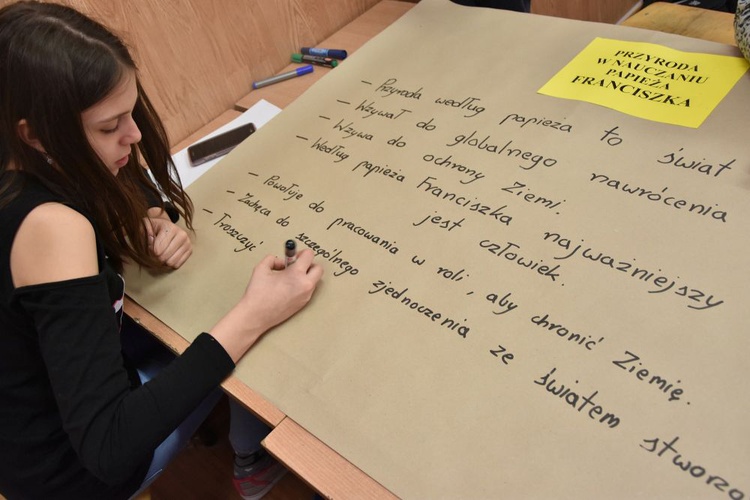 PRZYRODA
W NAUCZANIU
PAPIEŻA
FRANCISZKA
– Przyroda według papieża to świat
– Wzywał do globalnego nawrócenia
– Wzywa do ochrony Ziemi.
– Według papieża Franciszka najważniejszy
jest człowiek.
– Powołuje do pracowania w roli, aby chronić Ziemię.
– Zachęca do szczególnego zjednoczenia ze światem stworzo
– Troszczyć